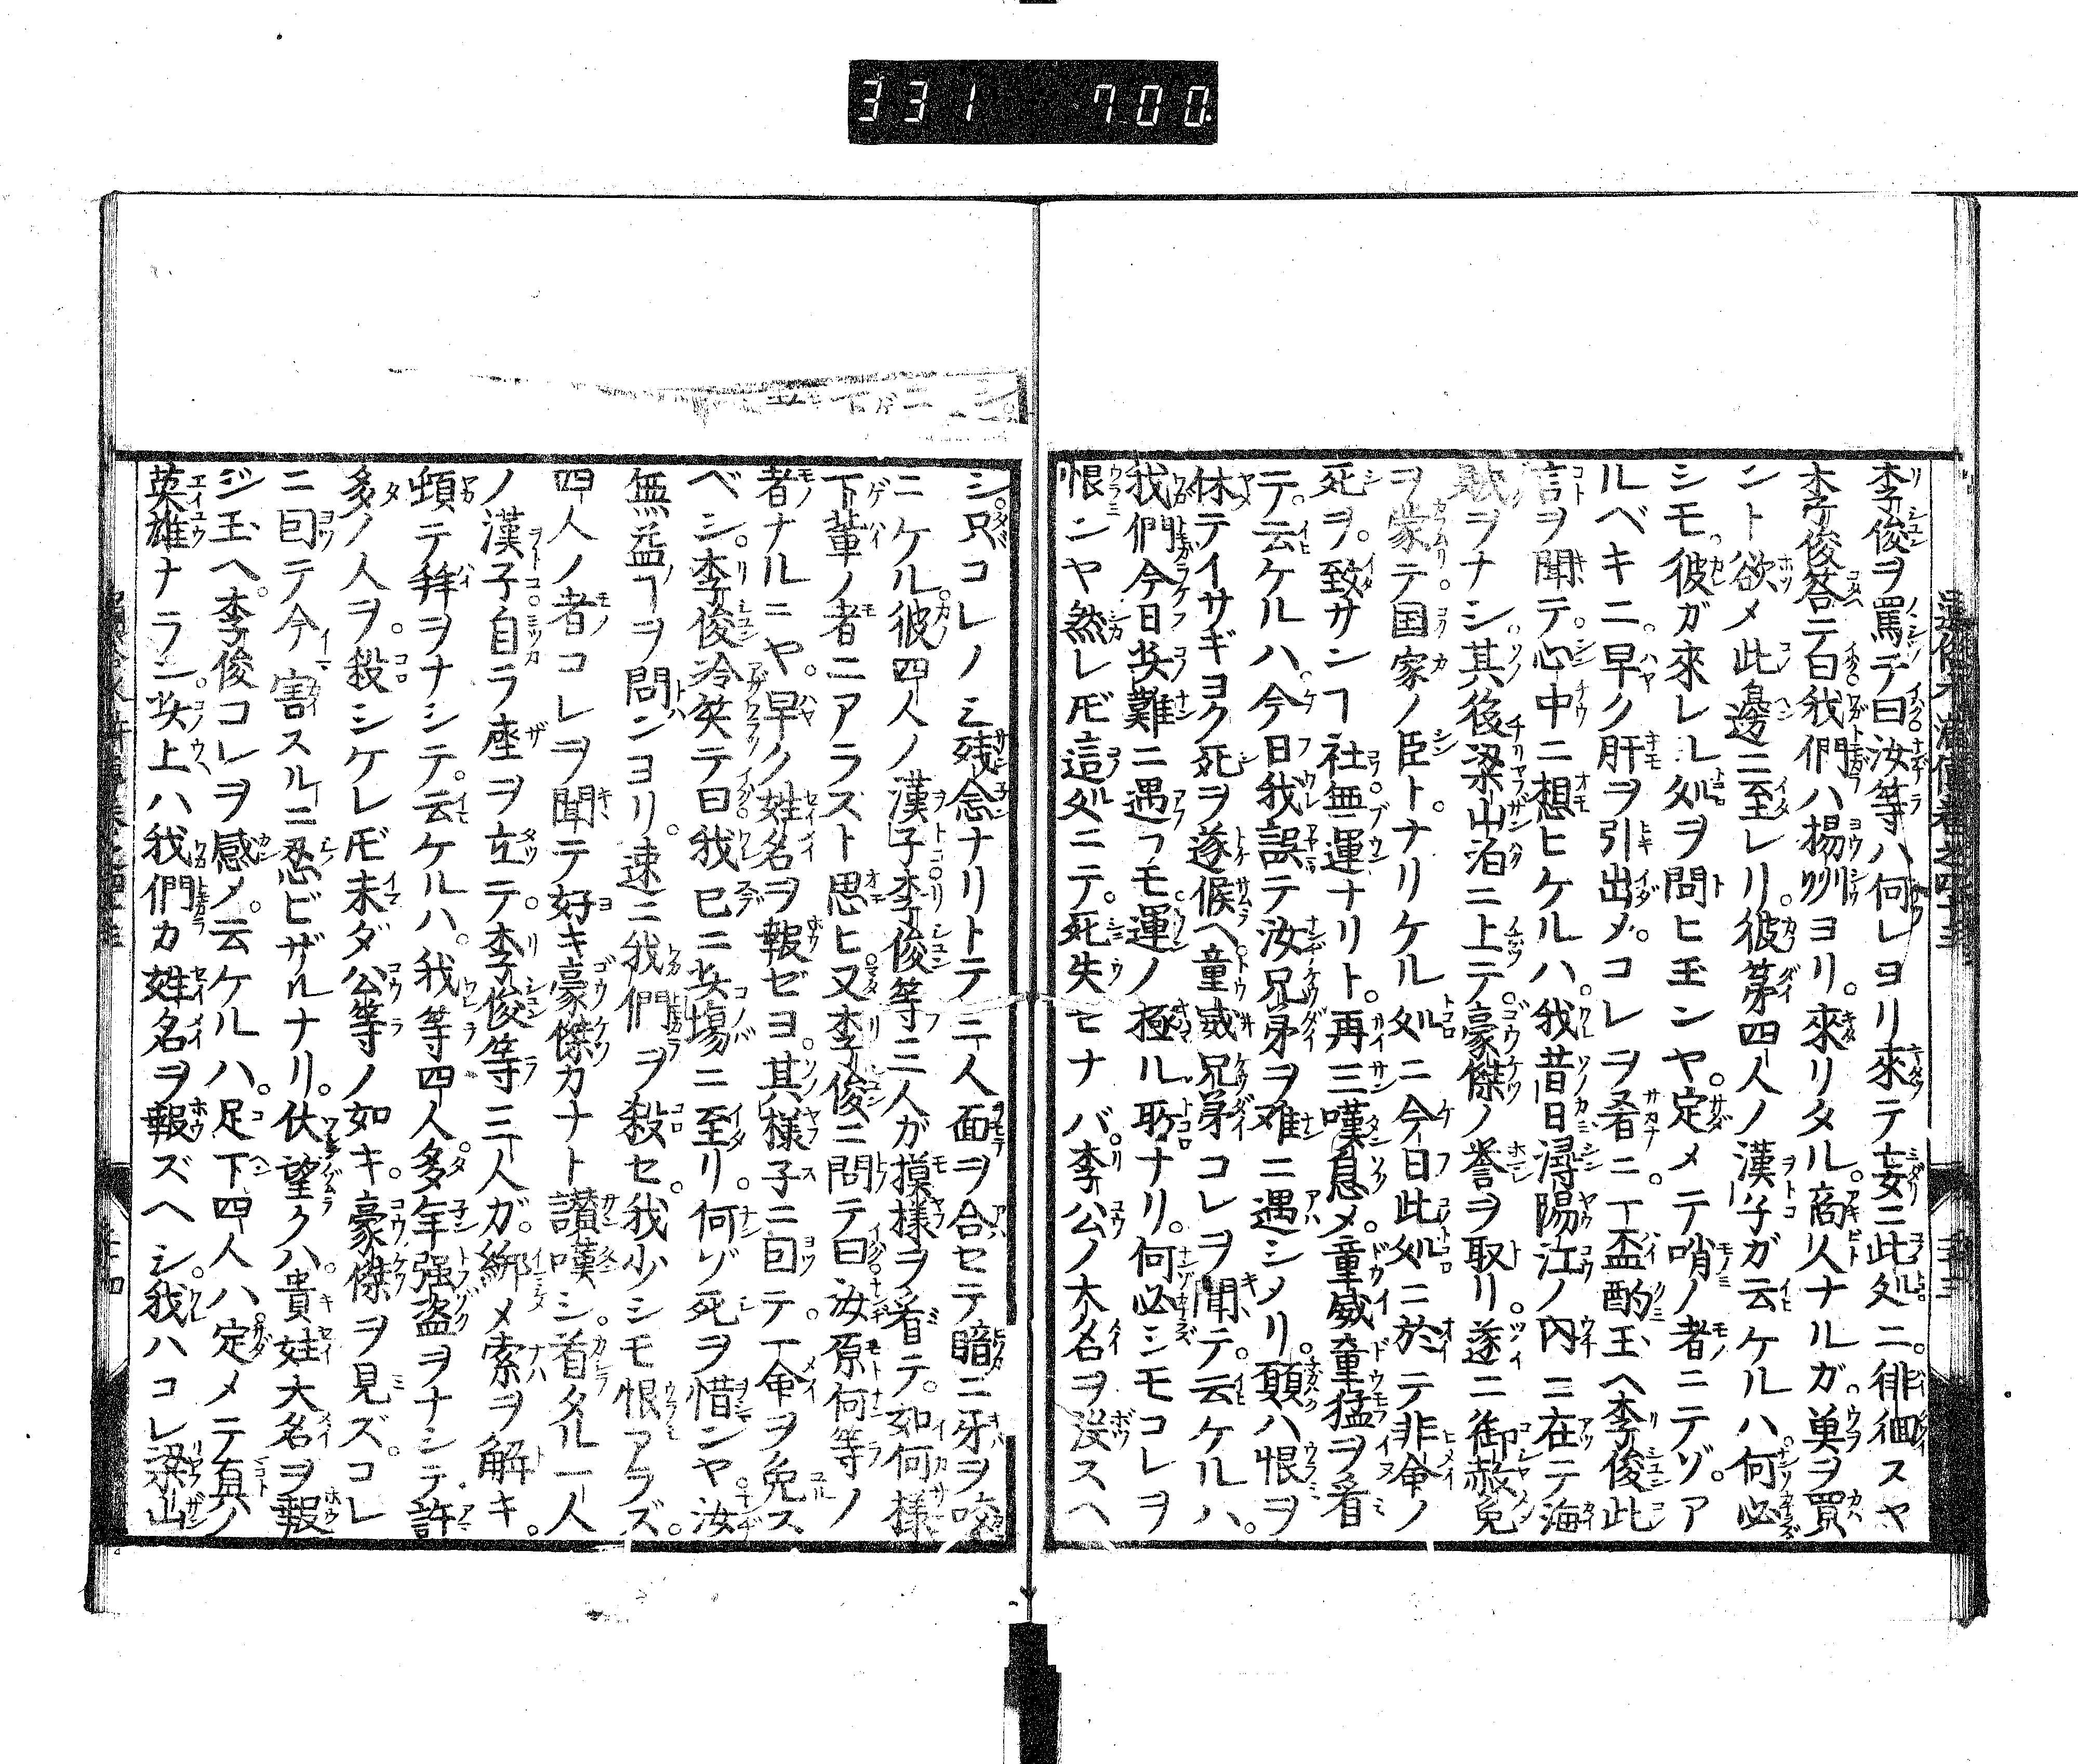 331 700
李俊ヲ罵テ曰汝等ハ何レヨリ來テ妄ニ此処ニ。徘徊スヤ
李俊答テ曰我們ハ揚州ヨリ。來リタル。商人ナルガ。巣ヲ買
ントト欲メ此邊ニ至レリ。彼第四人ノ漢子ガ云ケルハ何必
シモ彼ガ來レル処ヲ問ヒ玉ンヤ。定メテ哨ノ者ニテゾ。ア
ルベキニ。早ク肝ヲ引出メ。コレヲ肴ニ。一盃酌玉ヘ李俊此
言ヲ聞テ。心中ニ想ヒケルハ。我昔日潯陽江ノ内ニ在テ海
賊ヲナシ。其後梁山泊ニ上テ。豪傑ノ誉ヲ取リ。遂ニ御赦免
ヲ蒙テ国家ノ臣ト。ナリケル処ニ今日此処ニ於テ非命ノ
死ヲ。致サンヿ社無運ナリト。再三嘆息メ。童威童猛ヲ看
テ。云ケルハ。今日我誤テ汝兄弟ヲ难ニ遇シメリ。願ハ恨ヲ
休テイサギヨク死ヲ遂候ヘ。童威兄弟コレヲ聞テ。云ケルハ。
我們今日災難ニ遇フモ。運ノ極ル所ナリ。何必シモコレヲ
恨ンヤ然レ𪜈這処ニテ。死失セナバ。李公ノ大名ヲ没スヘ
シ。只コレノミ残念ナリトテ二人面ヲ合セテ暗ニ牙ヲ咬
ニケル。彼四人ノ漢子李俊等三人ガ摸様ヲ看テ。如何様
下輩ノ者ニアラスト思ヒ又李俊ニ問テ曰汝原何等ノ
者ナルニヤ。早ク姓名ヲ報ゼヨ。其様子ニ因テ。一命ヲ免ス
ベシ。李俊冷笑テ曰我已ニ此場ニ至リ。何ゾ死ヲ惜ンヤ汝
無益ノヿヲ問ンヨリ。速ニ我們ヲ殺セ。我少シモ恨アラズ。
四人ノ者コレヲ聞テ好キ豪傑カナト讃嘆シ。首タル一人
ノ漢子自ラ座ヲ立テ。李俊等三人ガ。綁メ索ヲ解キ。
頓テ拜ヲナシテ。云ケルハ。我等四人多年强盗ヲナシテ許
多ノ人ヲ。殺シケレ𪜈未ダ公等ノ如キ。豪傑ヲ見ズ。コレ
ニ因テ今害スルニ忍ビザルナリ。伏望クハ貴姓大名ヲ報
ジ玉ヘ。李俊コレヲ感メ。云ケルハ。足下四人ハ定メテ真ノ
英雄ナラン。此上ハ我們カ姓名ヲ報ズヘシ。我ハコレ梁山